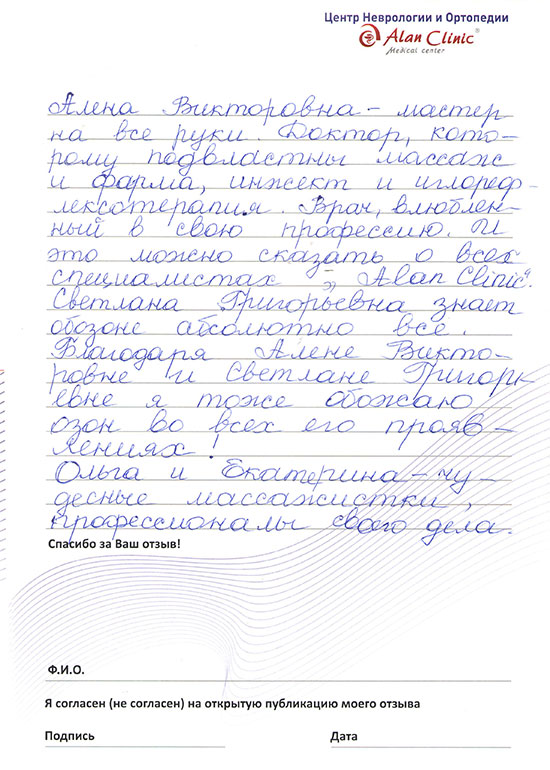 Центр Неврологии и Ортопедии
Alan Clinic®
Medical center
Алена Викторовна – мастер
на все руки. Доктор, кото-
рому подвластны массаж
и фарма, инжект и иглореф-
лексотерапия. Врач, влюблен-
ный в свою профессию. И
это можно сказать о всех
специалистах „Alan Clinic“.
Светлана Григорьевна знает
обозоне абсолютно все.
Благодаря Алене Викто-
ровне и Светлане Григорь
евне я тоже обожаю
озон во всех его прояв-
лениях!
Ольга и Екатерина – чу-
десные массажистки,
профессионалы своего дела.
Спасибо за Ваш отзыв!
Ф.И.О.
Я согласен (не согласен) на открытую публикацию моего отзыва
Подпись Дата